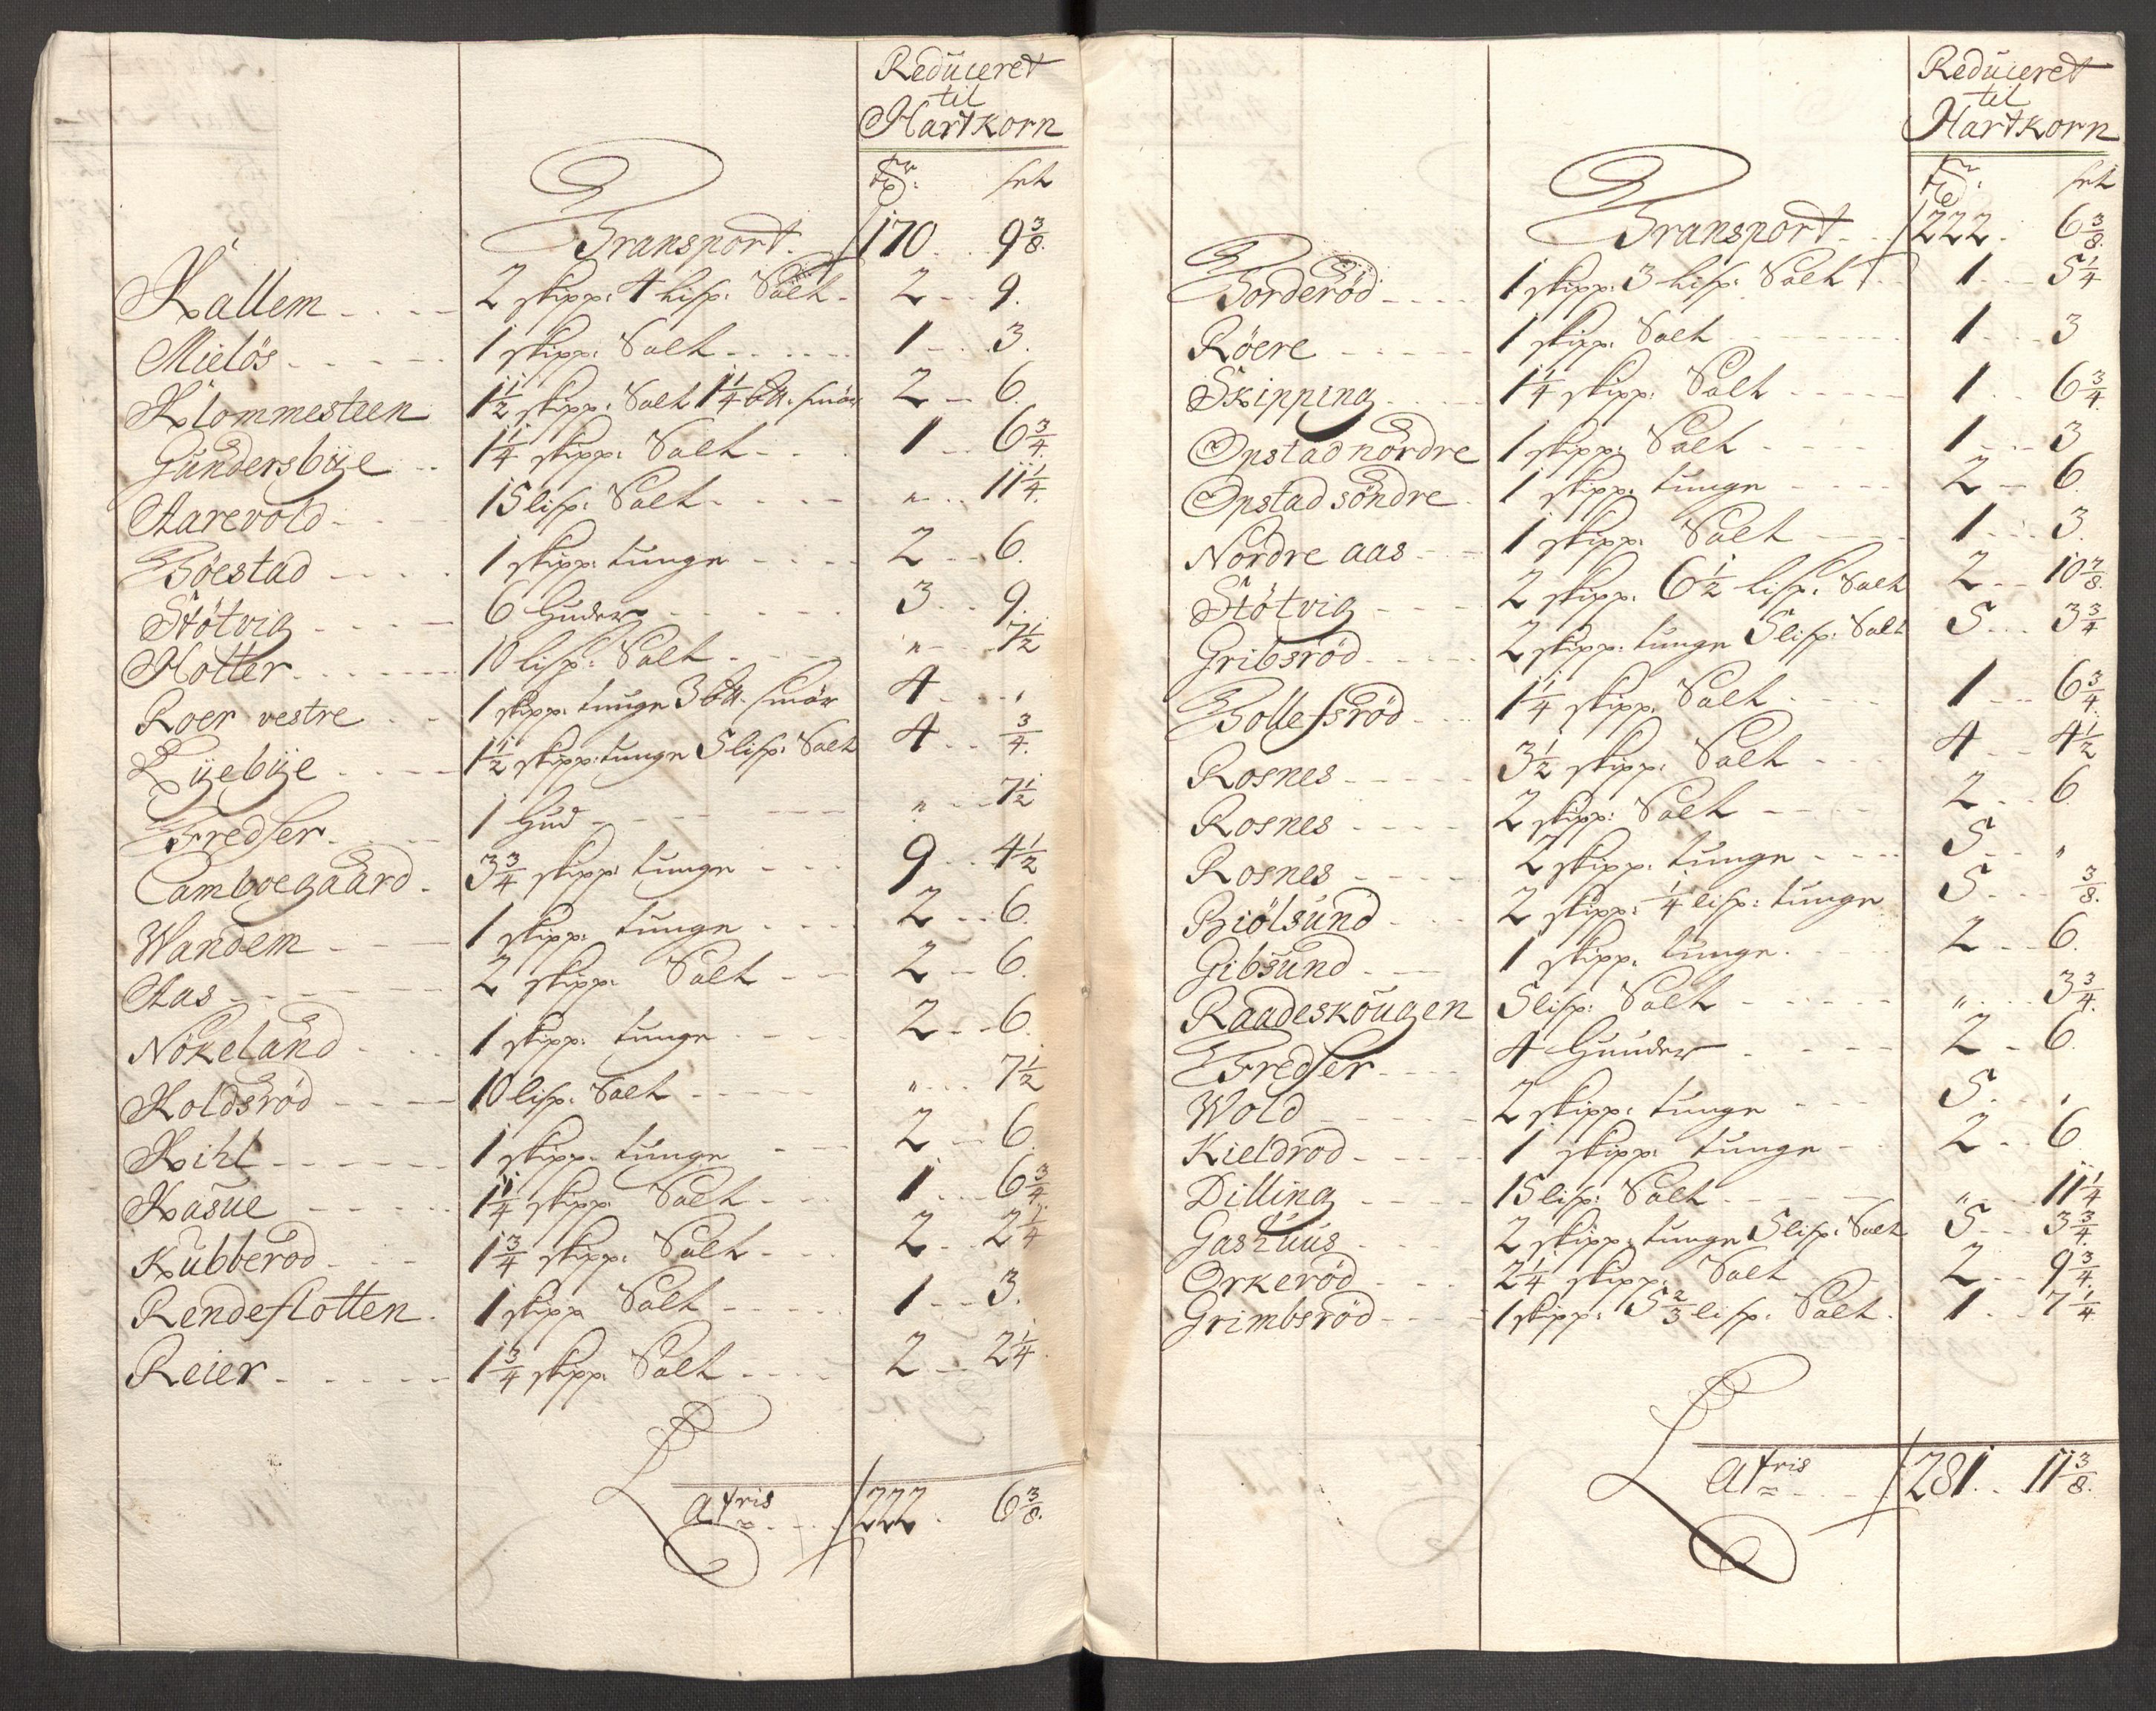 Reduceret
til
Hartkorn
Tdr: sch
Transport. 170 . . 9 3/8.
Kallem . . . 2 skipp: 4 lisp: Salt - 2 - - 9.
Mieløs . . . . 1 skipp: Salt . . . . 1 - . . 3.
Klommesteen 1 1/2 skipp: Salt 1 1/4 bll. smør 2 - - 6.
Gundersbÿe . . 1 1/4 skipp: Salt - . . 1 . . 6 3/4.
Aarevold . . . 15 lisp: Salt . . . " . . 11 1/4.
Tøestad . . . . 1 skipp: tunge . . . 2 - - 6.
Støtvig . . . . 6 Huder . . . . 3 . . 9.
Hotter . . . . 10 lisp: Salt . . . . " . . 7 1/2
Roer vestre . . 1 skipp: tunge 3 bll. smør 4 . . . ,
Lÿebÿe . . . . 1 1/2 skipp: tunge 5 lisp: Salt 4 . . 3/4.
Fredser . . . . 1 Hud . . . . " . . 7 1/2
Camboegaard . 3 3/4 skipp: tunge . . . 9 . . 4 1/2
Wandem . . . 1 skipp: tunge . . . 2 . . 6.
Aas . . . . 2 skipp: Salt . . 2 - - 6.
Nökeland . . . 1 skipp: tunge . . . 2 - - 6.
Koldsrød . . . 10 lisp: Salt . . . . " . . . 7 1/2
Kihl . . . . . 1 skipp: tunge . . 2 - - 6.
Kasue . . . . 1 1/4 skipp: Salt . . . 1 . . . 6 3/4
Kubberod . . . 1 3/4 skipp: Salt . . . 2 . . 2 1/4
Rendeflotten . 1 skipp Salt . . . . 1 - - 3.
Reier . . . . . 1 3/4 skipp: Salt . . . . 2 - - 2 1/4.
Latris . . . . 222 . 6 3/8.
Reduceret
til
Hartkorn
Tdr. sch
Transport . . 222 . 6 3/8.
Torderød . . . . 1 skipp: 3 lisp: Salt . . 1 . . . 5 1/4
Røere . . . . . 1 skipp: Salt . . . . 1 . . . 3
Skipping . . . . 1 1/4 skipp: Salt . . . . 1 . . 6 3/4.
Opstad nordre 1 skipp: Salt . . . . 1 . . . 3
Opstad söndre . 1 skipp: tunge . . . . 2 - - 6.
Nordre aas . . . 1 skipp: Salt . . . 1 . . . 3.
Støtvig . . . . 2 skipp: 6 1/2 lisp: Salt 2 . . 10 7/8.
Gribsrød . . . . 2 skipp: tunge 5 lisp: Salt 5 . . . 3 3/4
Tollefsrød . . . 1 1/4 skipp: Salt . . . . 1 . . 6 3/4.
Rosnes . . . . . 3 1/2 skipp: Salt . . . 4 . . 4 1/2
Rosnes . . . . 2 skipp: Salt . . . . 2 . . 6.
Rosnes . . . . 2 skipp: tunge . . . . 5 . . "
Biölsund . . . 2 skipp: 1/4 lisp: tunge 5 . . . 3/8.
Gibsund . . . 1 skipp: tunge . . . . 2 - - 6.
Raadeskougen 5 lisp: Salt . . . . . " . . . 3 3/4.
Fredser . . . . 4 Huuder . . . . 2 - 6.
Wold . . . . . 2 skipp: tunge . . . 5 . . ,
Kieldrod . . . . 1 skipp: tunge . . 2 . . 6.
Dilling . . . . 15 lisp: Salt . . . . " . . . 11 1/4
Gashuus . . . 2 skipp: tunge 5 lisp: Salt 5 . . . 3 3/4.
Orkerød . . . . 2 1/4 skipp: Salt . . 2 . . 9 3/4.
Grimbsrød . . . . 1 skipp: 5 2/3 lisp: Salt . 1 . . 7 1/4
Latris . . . . 281 . . 11 3/8.